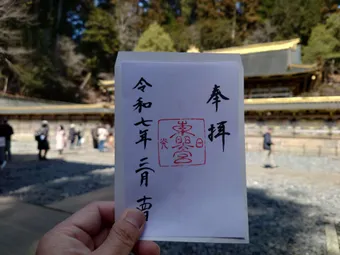 奉拝
日光
東照宮
令和七年三月